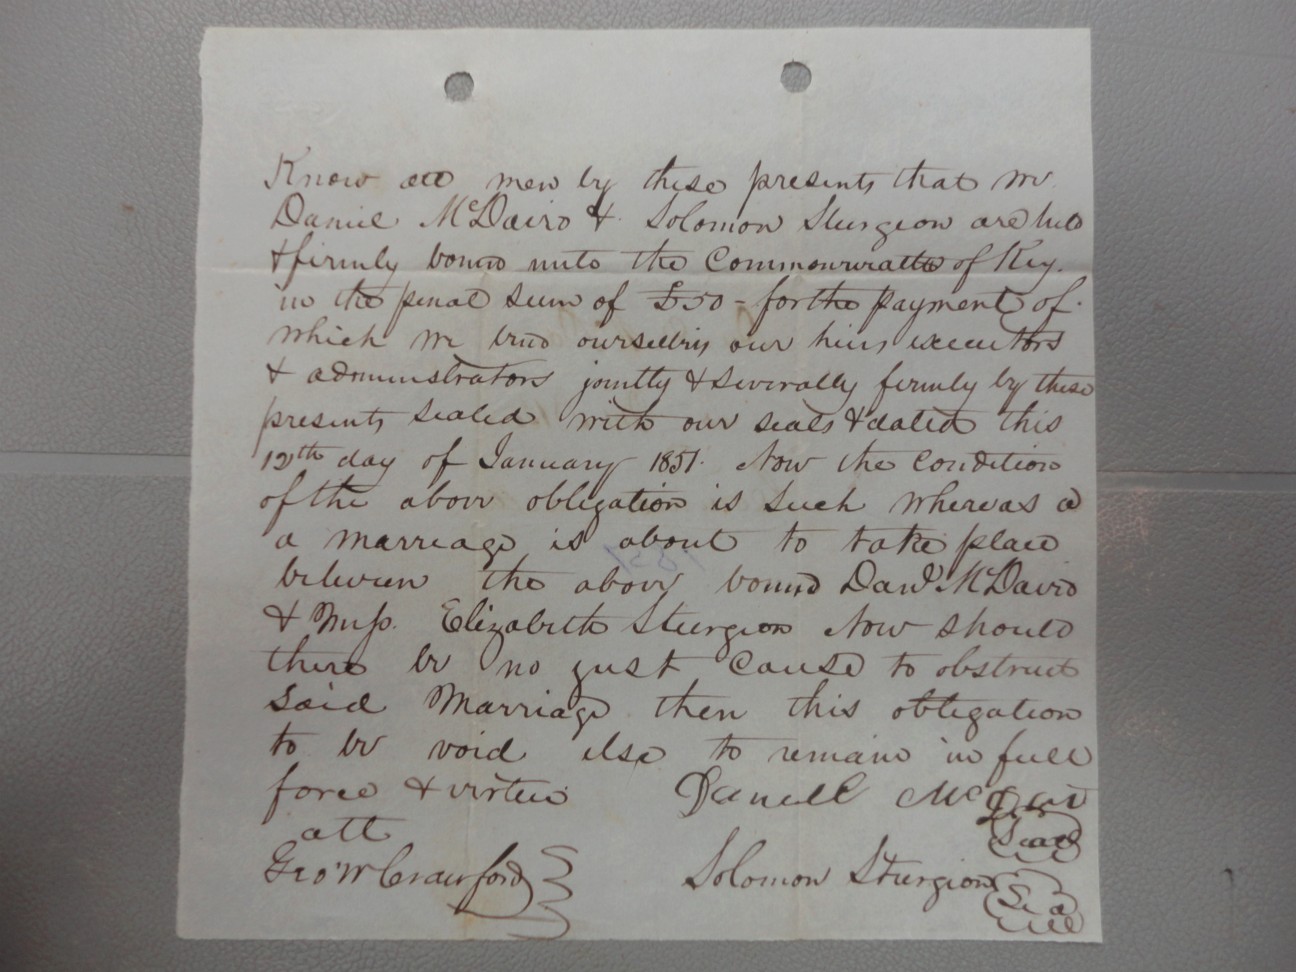 Know all men by these presents that we
Daniel McDavid & Solomon Sturgeon are held
& firmly bound unto the Commonwealth of Key.
in the penal sum of £50 - for the payment of
which we bind ourselvs our heirs executors
& administrators jointly & severally firmly by these
presents sealed with our seals & dated this
12th day of January 1851. Now the condition
of the above obligation is such whereas a
a marriage is about to take place
between the above bound Danl McDavid
& Miss. Elizabeth Sturgeon Now should
there be no just cause to obstruct
said Marriage then this obligation
to be void else to remain in full
force & virtue Daniell McDavid
Seal
att
Geo W Crawford Solomon Sturgion Seal